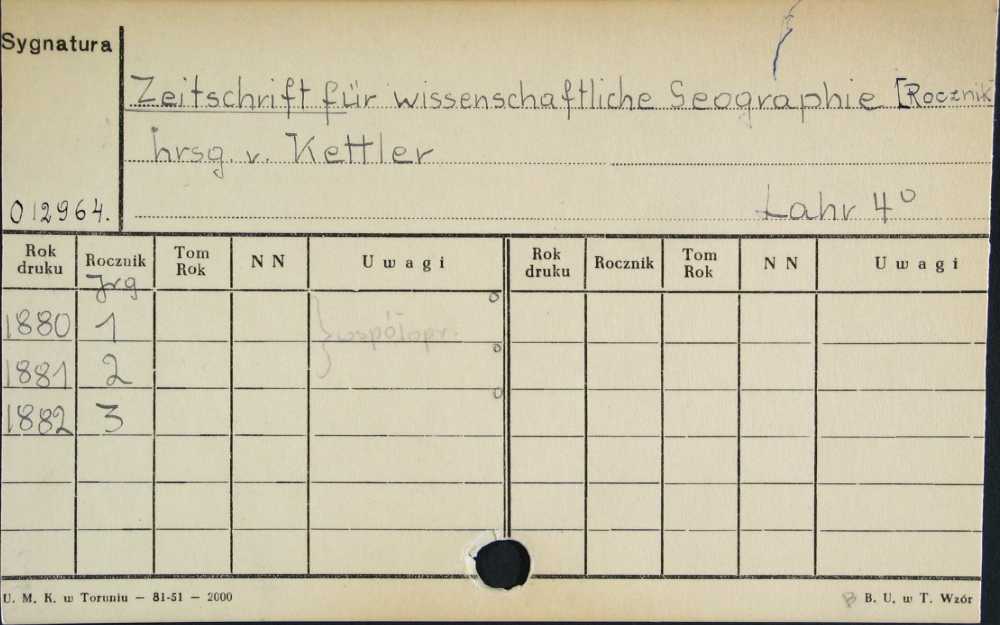 Sygnatura
Zeitschrift für wissenschaftliche Geographie [Rocznik]
hrsg. v. Kettler
012964.
Lahr 4°
Rok druku Rocznik Tom Rok N N Uwagi Rok druku Rocznik Tom Rok N N Uwagi
Jrg
1880 1 } współopr.
1881 2
1882 3
U. M. K. w Toruniu — 81-51 — 2000
B B. U. w T. Wzór